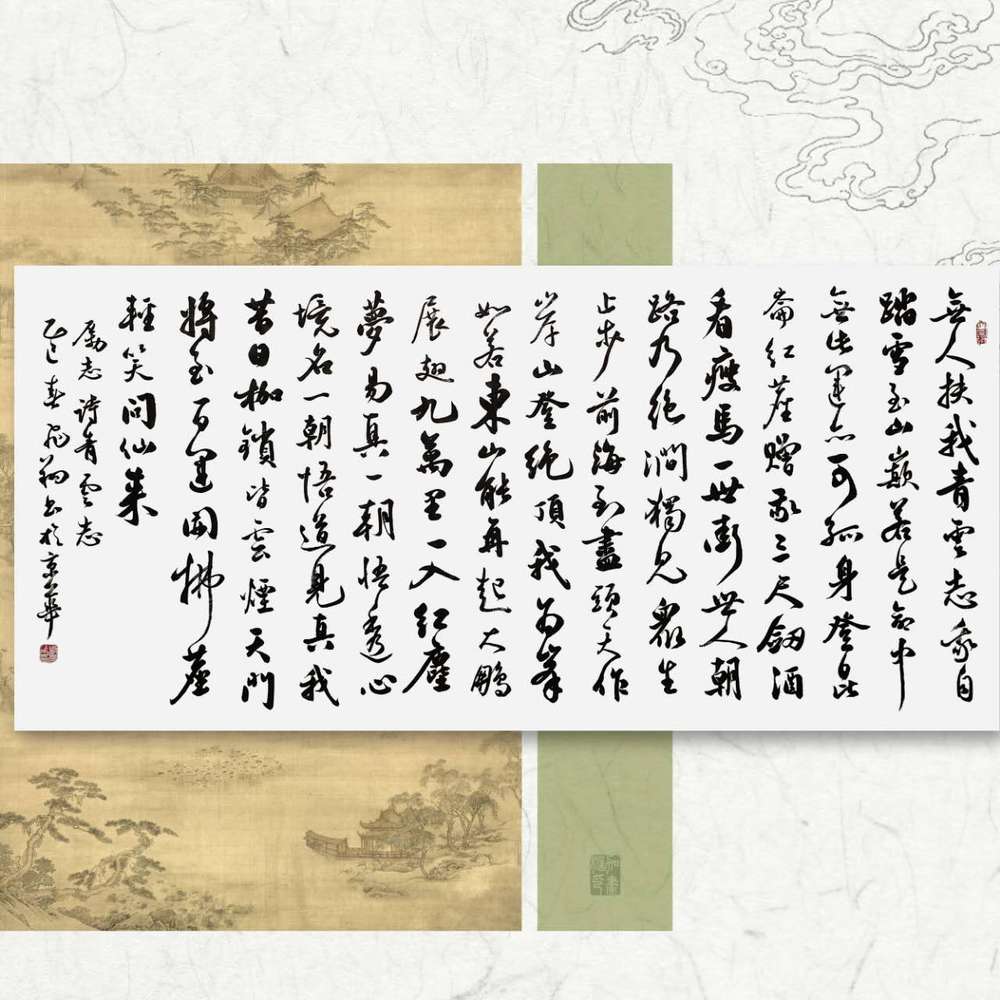 無人扶我青雲志我自
踏雪至山巔若是命中
無此運亦可孤身登昆
崙紅塵贈我三尺劍酒
看瘦馬一世衝世人朝
路乃絕澗獨見眾生
止步前海到盡頭天作
岸山登絕頂我為峯
如若東山能再起大鵬
展翅九萬里一入紅塵
夢易真一朝悟透心
境名一朝悟道見真我
昔日枷鎖皆雲煙天門
將至百運開拂塵
輕笑問仙来
勵志詩青雲志
乙巳春翔書於京華